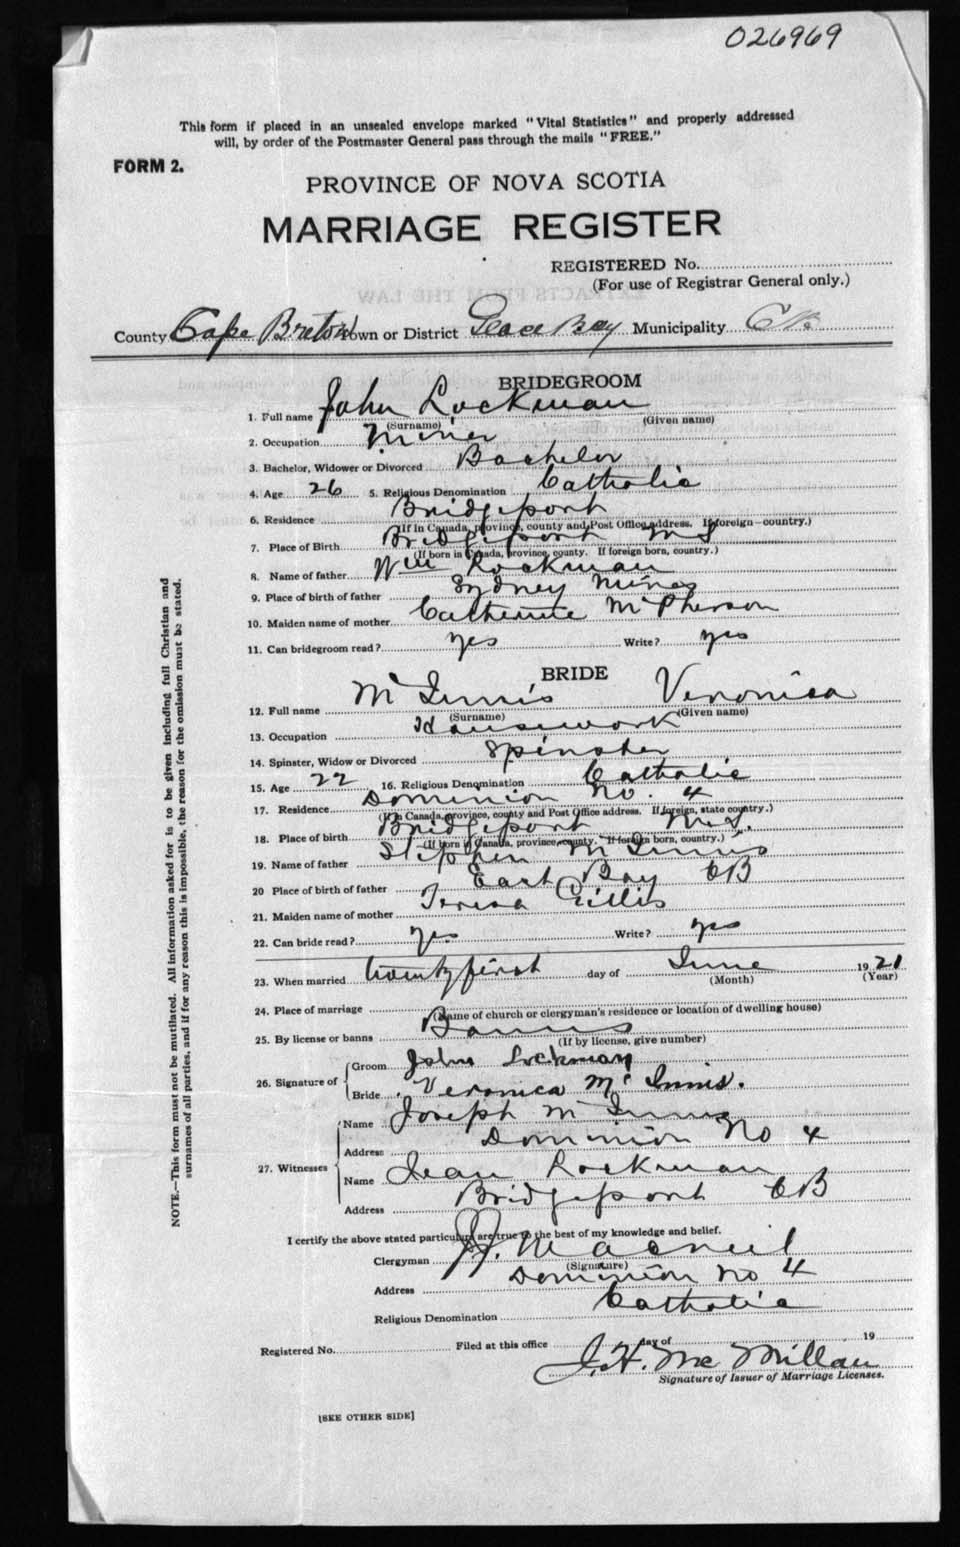 026969
This form if placed in an unsealed envelope marked "Vital Statistics" and properly addressed
will, by order of the Postmaster General pass through the mails "FREE."
FORM 2.
PROVINCE OF NOVA SCOTIA
MARRIAGE REGISTER
REGISTERED No.
(For use of Registrar General only.)
County Cape Breton Town or District Glace Bay Municipality C B.
BRIDEGROOM
1. Full name John Lockman
(Surname) (Given name)
2. Occupation Miner
3. Bachelor, Widower or Divorced Bachelor
4. Age 26 5. Religious Denomination Catholic
6. Residence Bridgeport
(If in Canada, province, county and Post Office address. If foreign—country.)
7. Place of Birth Bridgeport N S
(If born in Canada, province, county. If foreign born, country.)
8. Name of father Wm Lockman
9. Place of birth of father Sydney Mines
10. Maiden name of mother Catherine McPherson
11. Can bridegroom read? yes Write? yes
BRIDE
12. Full name McInnis Veronica
(Surname) (Given name)
13. Occupation Housework
14. Spinster, Widow or Divorced Spinster
15. Age 22 16. Religious Denomination Catholic
17. Residence Dominion No. 4
(If in Canada, province, county and Post Office address. If foreign, state country.)
18. Place of birth Bridgeport N.S.
(If born in Canada, province, county. If foreign born, country.)
19. Name of father Stephen McInnis
20 Place of birth of father East Bay CB
21. Maiden name of mother Teresa Gillis
22. Can bride read? yes Write? yes
23. When married twenty first day of June 1921
(Month) (Year)
24. Place of marriage
(Name of church or clergyman's residence or location of dwelling house)
25. By license or banns Banns
(If by license, give number)
26. Signature of
Groom John Lockman
Bride Veronica McInnis.
27. Witnesses
Name Joseph McInnis
Address Dominion No 4
Name Jean Lockman
Address Bridgeport CB
I certify the above stated particulars are true to the best of my knowledge and belief.
Clergyman Macneil
(Signature)
Address Dominion No 4
Religious Denomination Catholic
Registered No. Filed at this office day of 19
J. H. McMillan
Signature of Issuer of Marriage Licenses.
[SEE OTHER SIDE]
NOTE.—This form must not be mutilated. All information asked for is to be given including full Christian and
surnames of all parties, and if for any reason this is impossible, the reason for the omission must be stated.